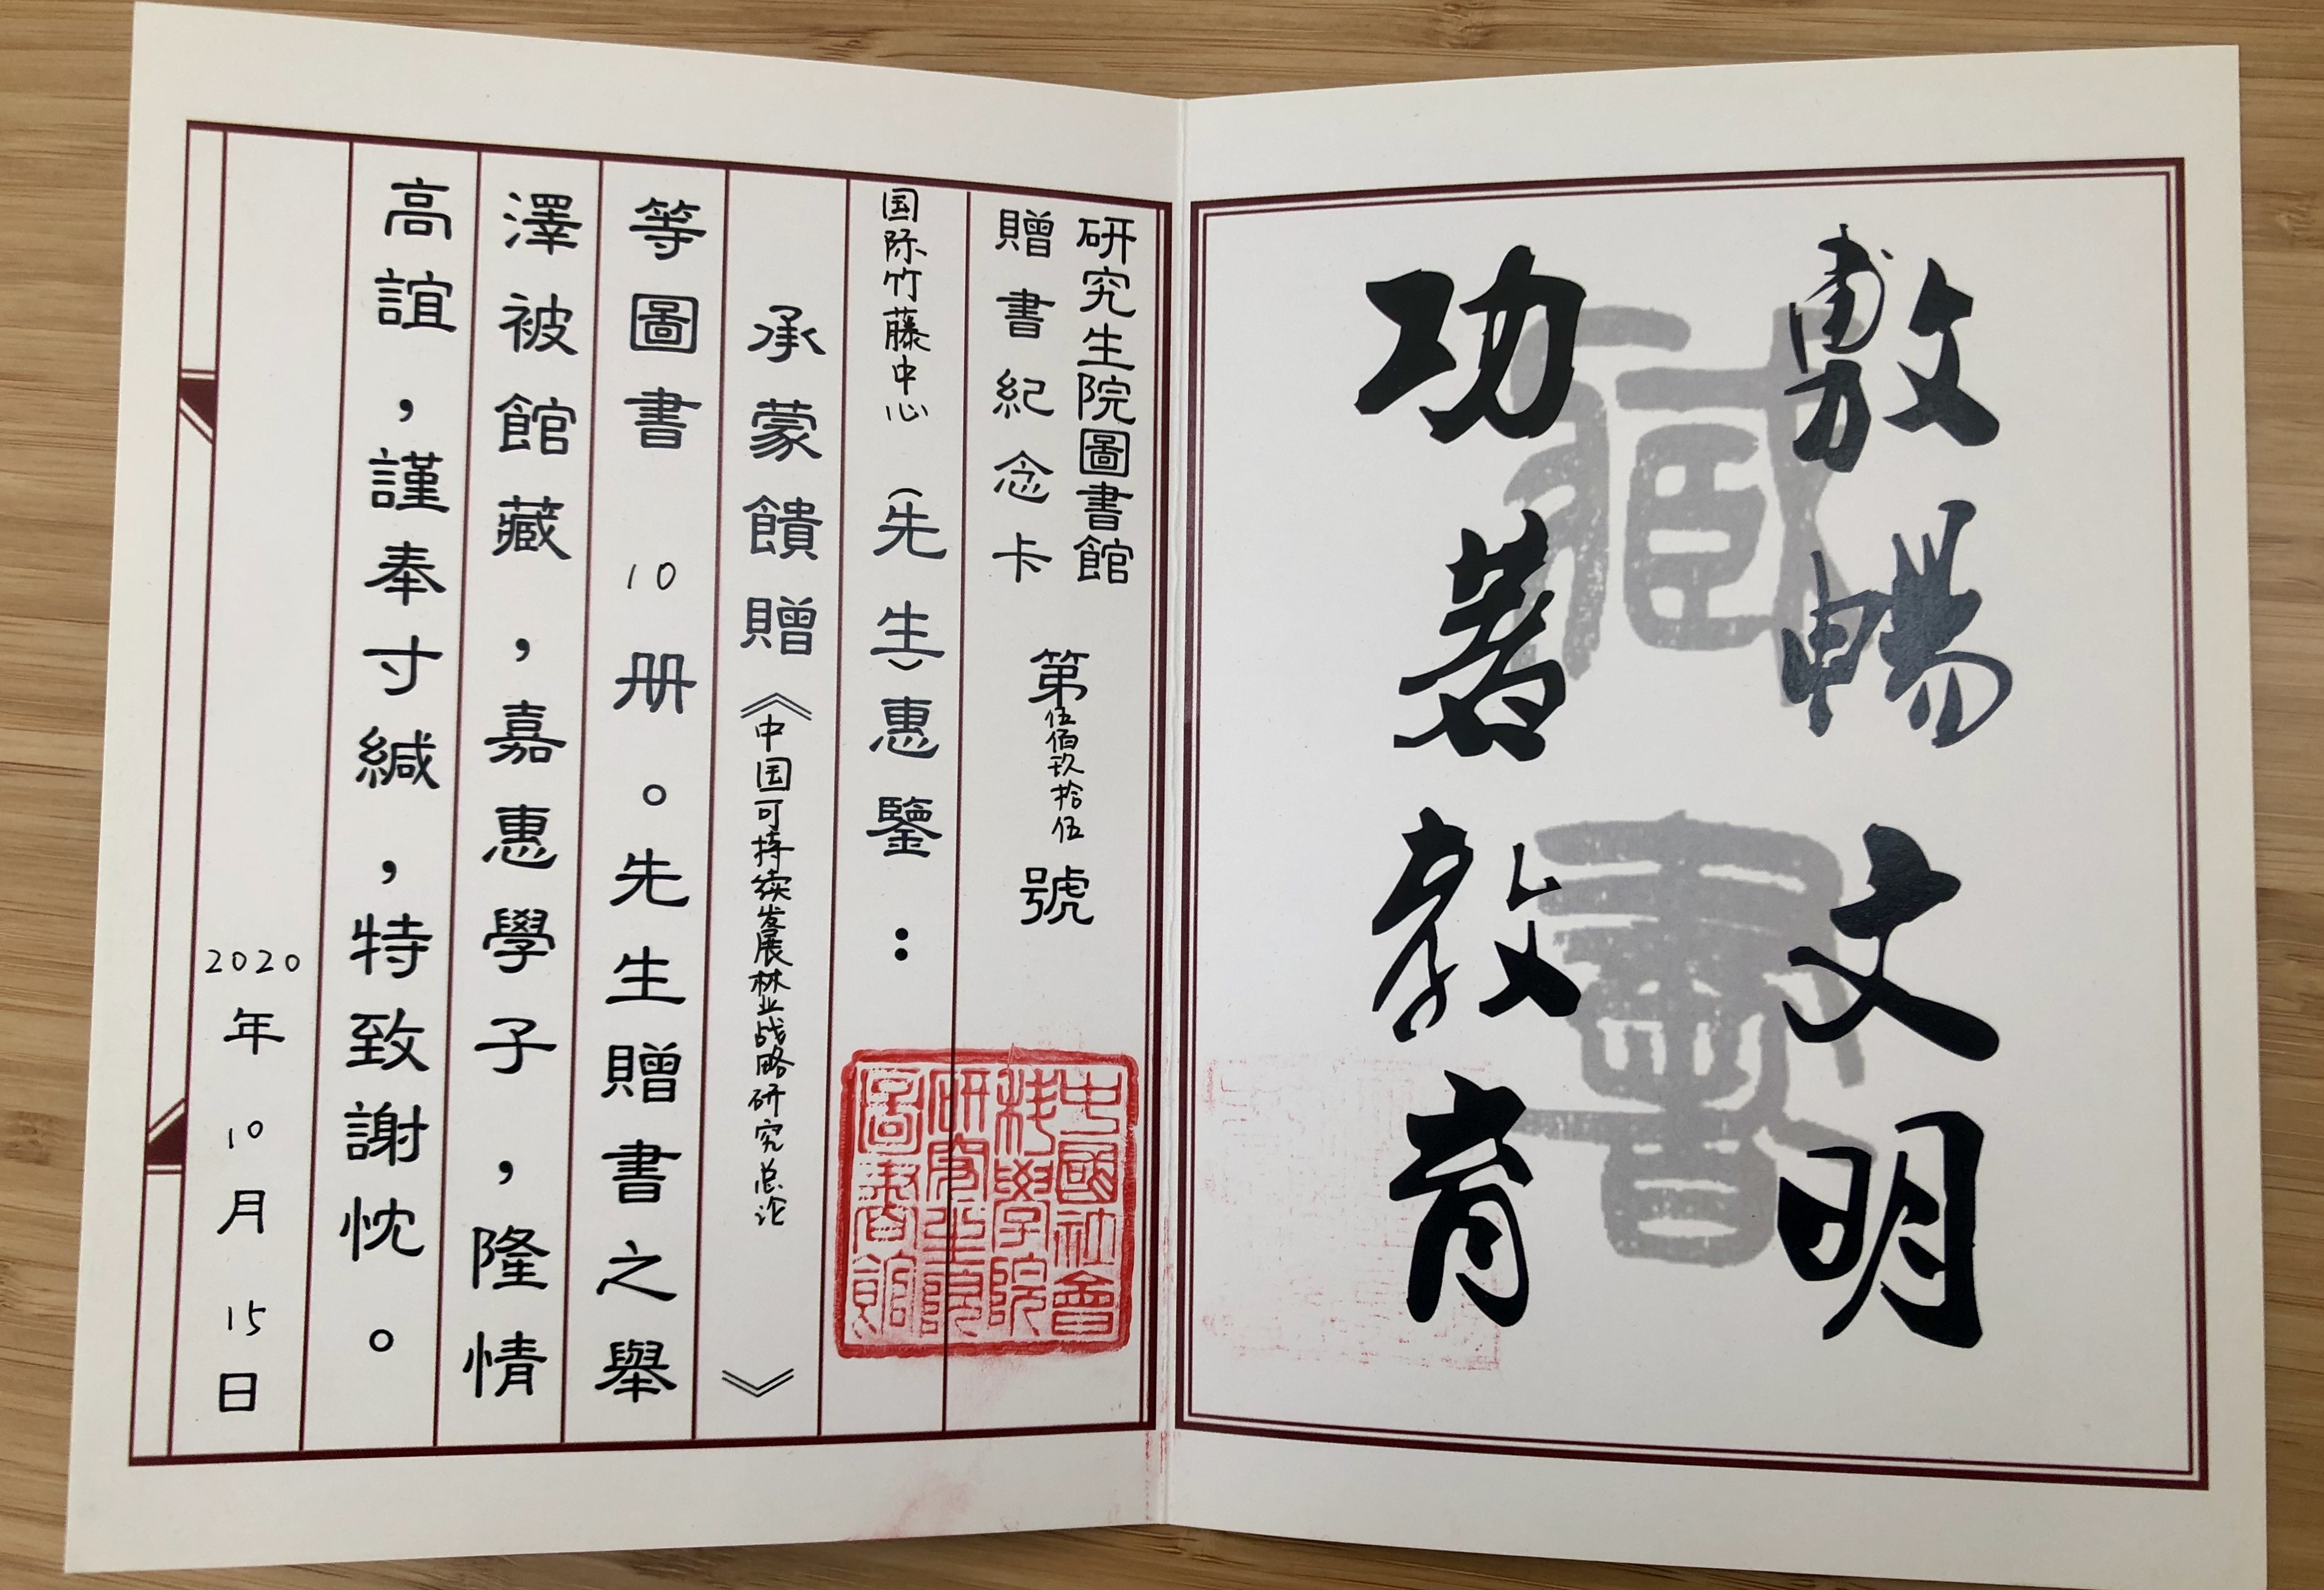 敷暢文明
功著教育
藏書
研究生院圖書館
贈書紀念卡
第伍佰玖拾伍號
国际竹藤中心（先生）惠鑒：
承蒙饋贈《中国可持续发展林业战略研究总论》
等圖書10册。先生贈書之舉
澤被館藏，嘉惠學子，隆情
高誼，謹奉寸緘，特致謝忱。
2020年10月15日
中國社會
科學院
研究生院
圖書館